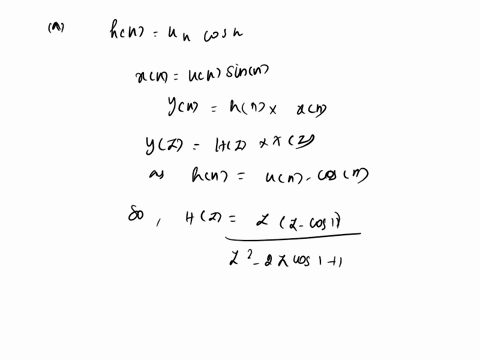 (A) h(n) = un cosn
x(n) = u(n) sin(n)
y(n) = h(n) × x(n)
Y(Z) = H(Z) × X(Z)
as h(n) = u(n) - cos(n)
so, H(Z) = Z (Z - cos1)
Z² - 2Z cos1 + 1